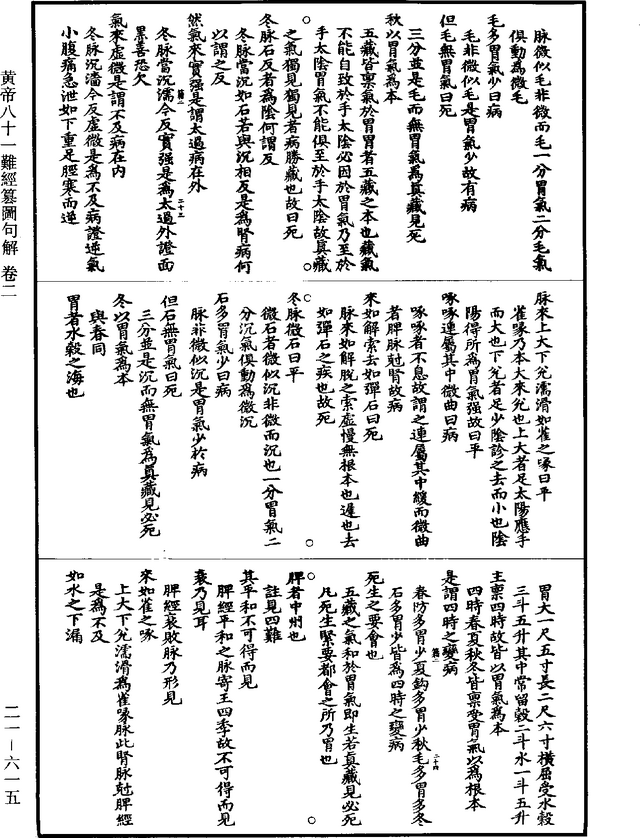 脉微似毛非微而毛一分胃氣二分毛氣
俱動為微毛
毛多胃氣少曰病
毛非微似毛是胃氣少故有病
但毛無胃氣曰死
三分並是毛而無胃氣為眞藏見死
秋以胃氣為本
五藏皆禀氣於胃胃者五藏之本也藏氣
不能自致於手太陰必因於胃氣乃至於
手太陰胃氣不能俱至於手太陰故眞藏
之氣獨見獨見者病勝藏也故曰死
冬脉石反者為陰何謂反
冬脉當沉如石若與沉相反是為腎病何
以謂之反
然氣來實强是謂太過病在外
冬脉當沉濡今反實强是為太過外證面
黑善恐欠
氣來虛微是謂不及病在內
冬脉沉濡今反虛微是為不及病證逆氣
小腹痛急泄如下重足脛寒而逆
脉來上大下兊濡滑如雀之啄曰平
雀啄乃本大來兊也上大者足太陽應手
而大也下兊者是少陰診之去而小也陰
陽得所為胃氣强故曰平
啄啄連屬其中微曲曰病
啄啄者不息故謂之連屬其中緩而微曲
者脾脉尅腎故病
來如解索去如彈石曰死
脉來如解脫之索虛慢無根本也遲也去
如彈石之疾也故死
冬脉微石曰平
微石者微似沉非微而沉也一分胃氣二
分沉氣俱動為微沉
石多胃氣少曰病
脉非微似沉是胃氣少於病
但石無胃氣曰死
三分並是沉而無胃氣為眞藏見必死
冬以胃氣為本
與春同
胃者水穀之海也
胃大一尺五寸長二尺六寸橫屈受水穀
三斗五升其中常留穀二斗水一斗五升
主禀四時故皆以胃氣為本
四時春夏秋冬皆禀受胃氣以為根本
是謂四時之變病
春防多胃少夏鈎多胃少秋毛多胃多冬
石多胃少皆為四時之變病
死生之要會也
五藏之氣和於胃氣即生若眞藏見必死
凡死生緊要都會之所乃胃也
脾者中州也
註見四難
其平和不可得而見
脾經平和之脉寄王四季故不可得而見
衰乃見耳
脾經衰敗脉乃形見
來如雀之啄
上大下兊濡滑為雀啄脉此腎脉尅脾經
是為不及
如水之下漏
黃帝八十一難經篡圖句解 卷二
二一－六一五